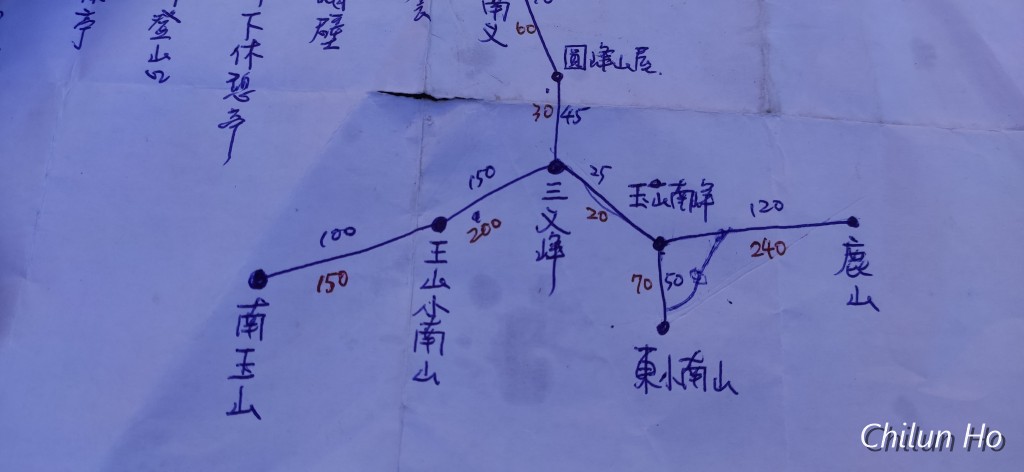 登山口
下休憩亭
壁
南义
60
圓峰山屋
30
45
三义峰
150
200
25
20
玉山南峰
120
240
100
150
王山小南山
70
50
鹿山
南玉山
東小南山
Chilun Ho